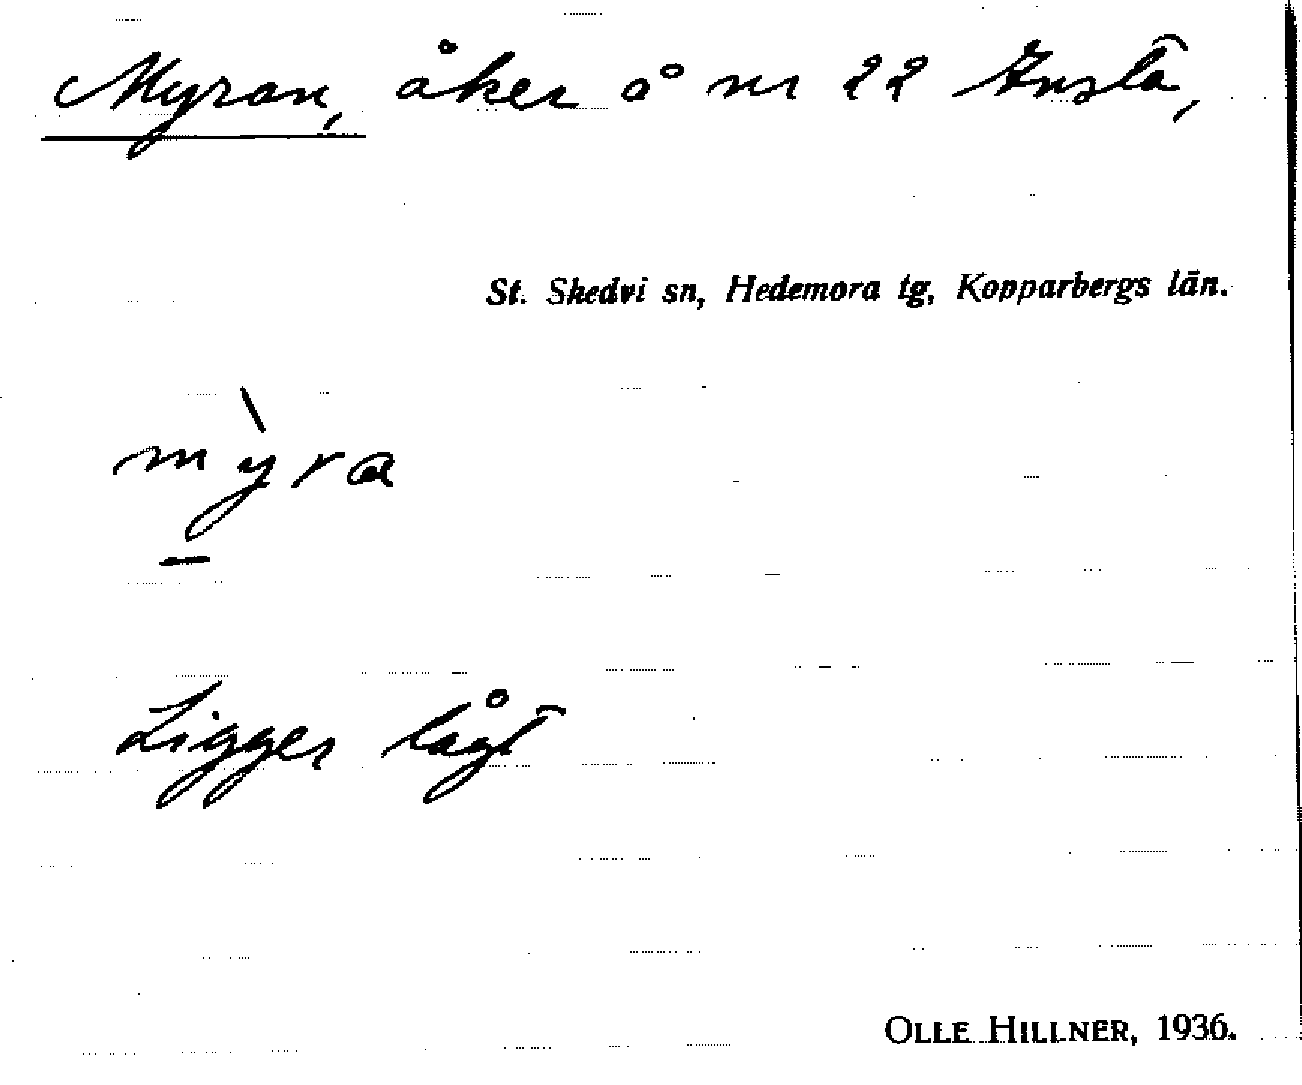 Myran, åker å nr 22 Insta,
St. Skedvi sn, Hedemora tg, Kopparbergs län.
mỳra
Ligger lågt
OLLE HILLNER, 1936.